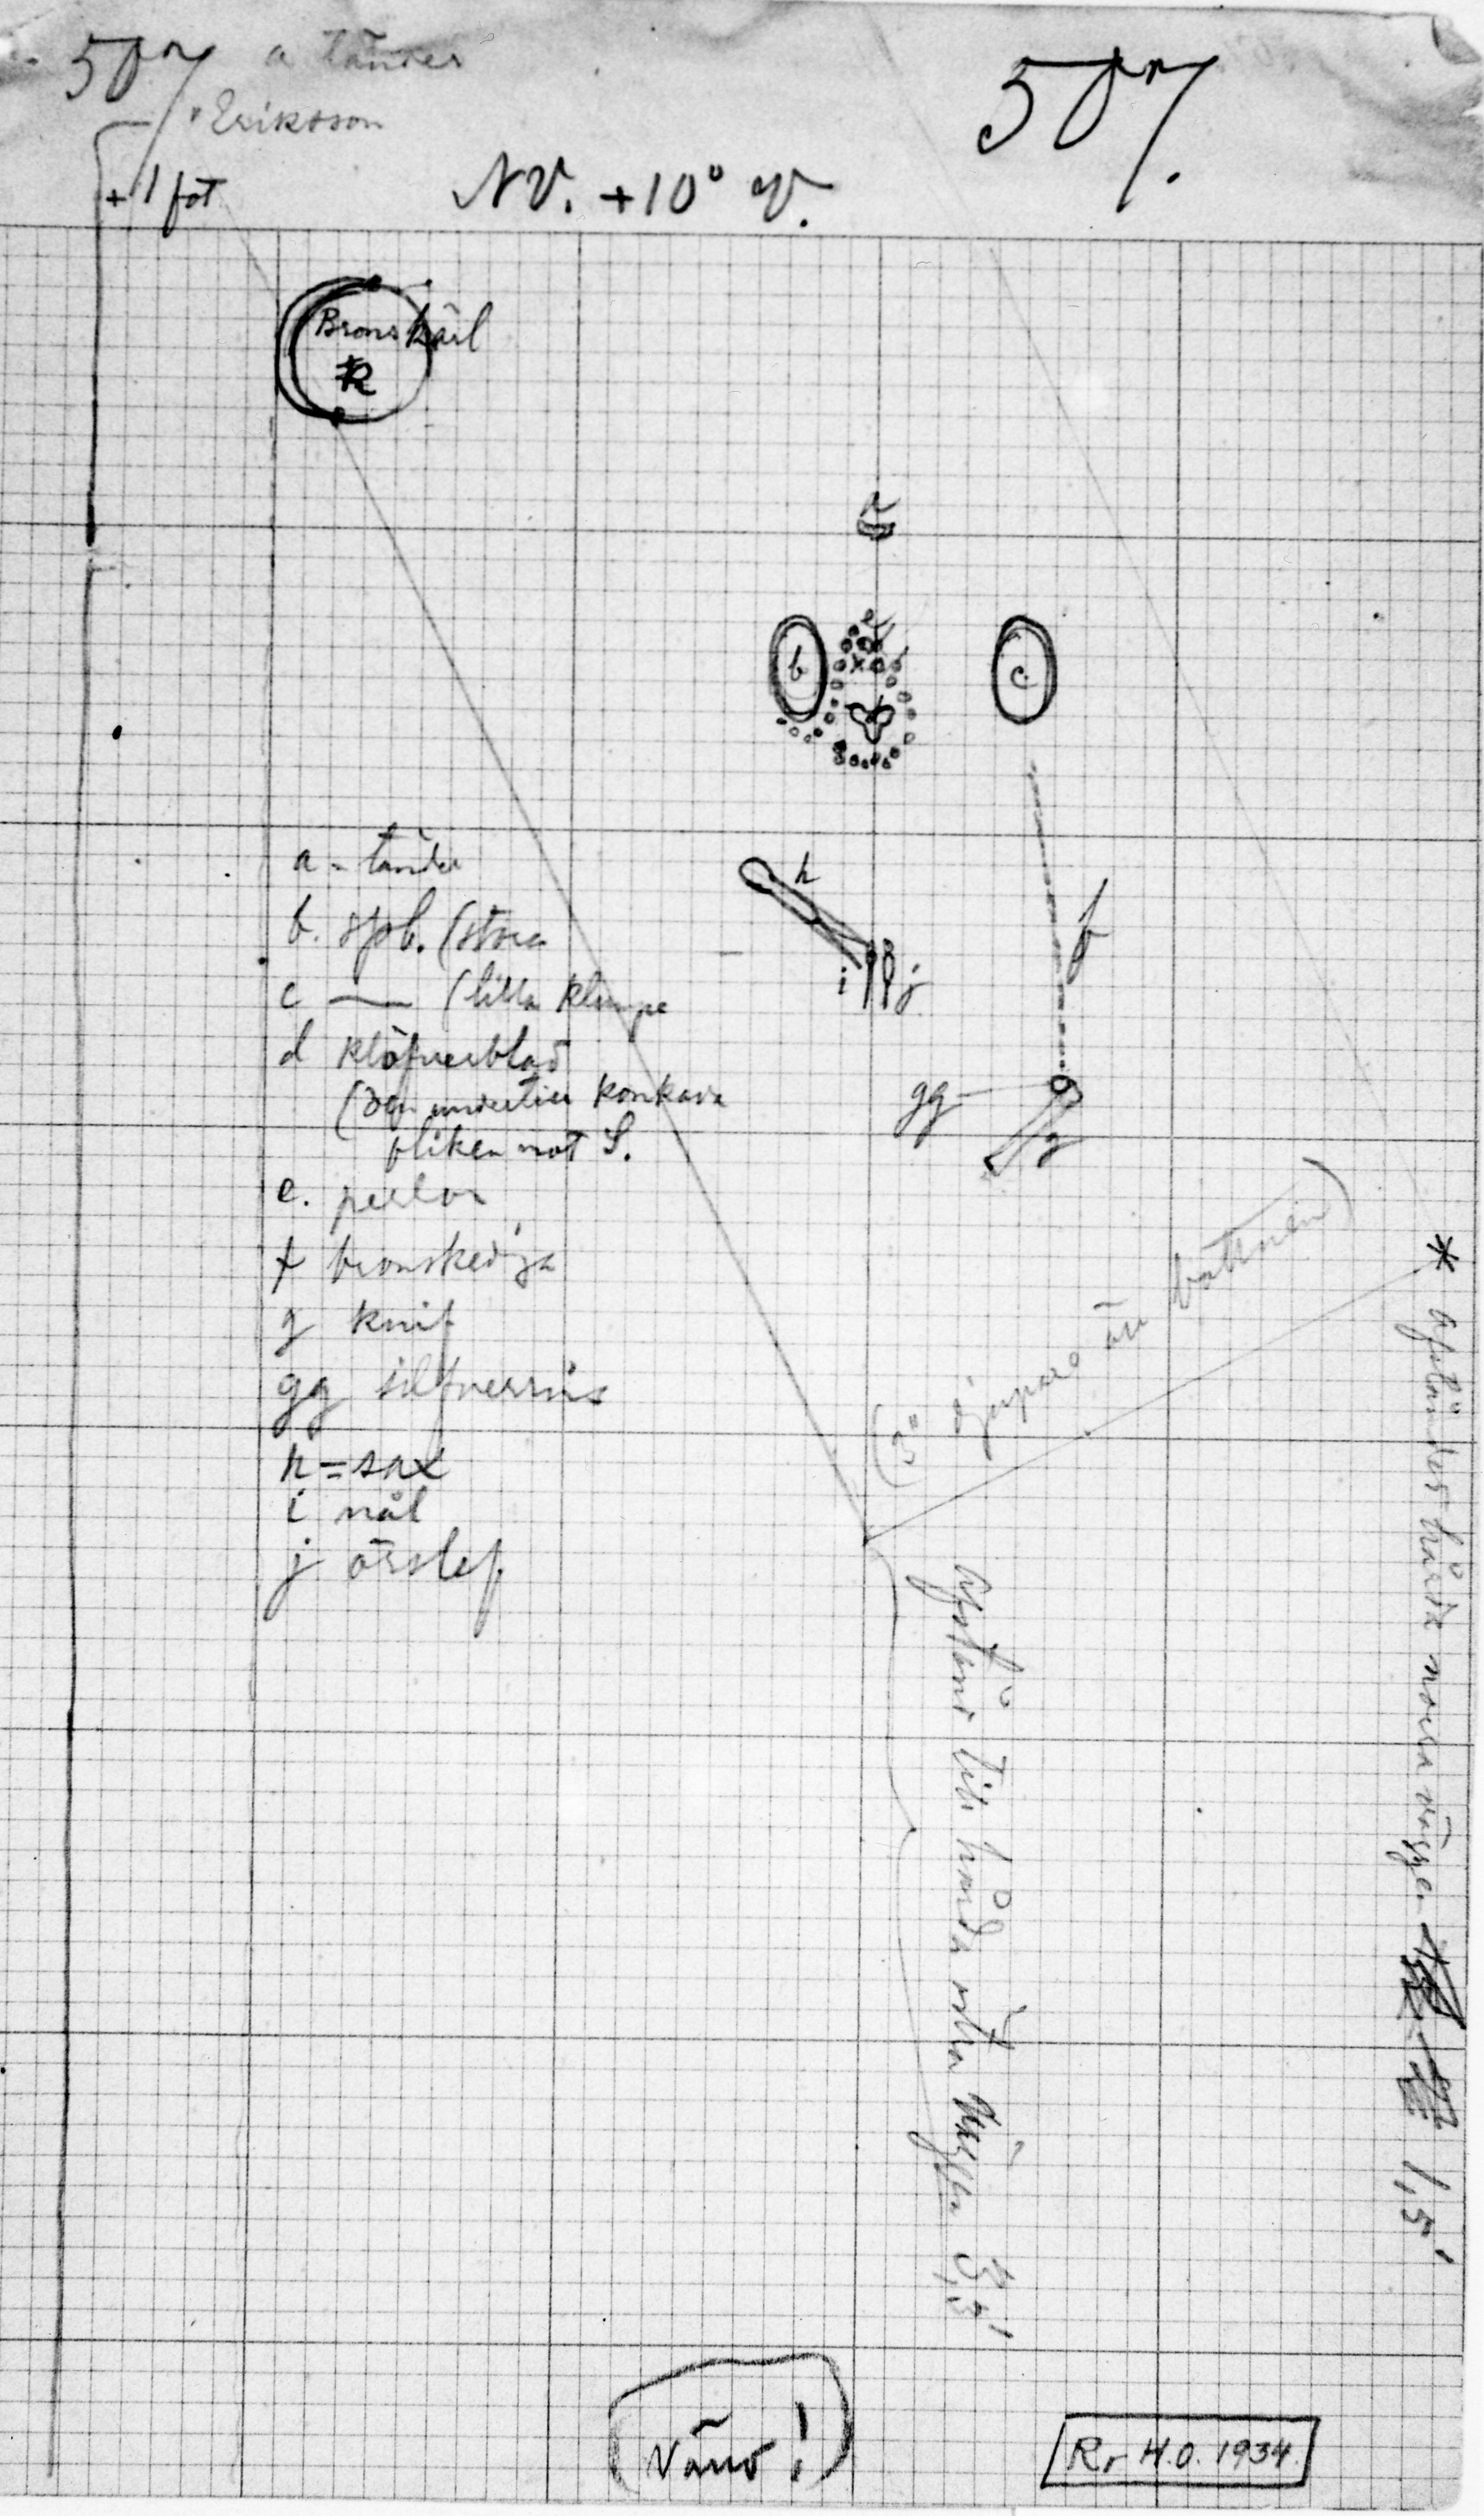 507 a tänder
Eriksson
+ 1 fot
507.
NV. +10° V.
Bronskärl
R
a
e
b
c
d
h
f
i
j
gg
g
a - tänder
b. spb. (stora
c — (lilla klumpe
d klöfverblad
(den undertill konkava
fliken mot S.
e. perlor
f bronskedja
g knif
gg silfverring
h = sax
i nål
j örslef
(3" djupare än bottnen)
* afstånd t hårda norra väggen
1,5'
Afstånd till hårda östra väggen 3,3'
Vänd!
Rr H.O. 1934.